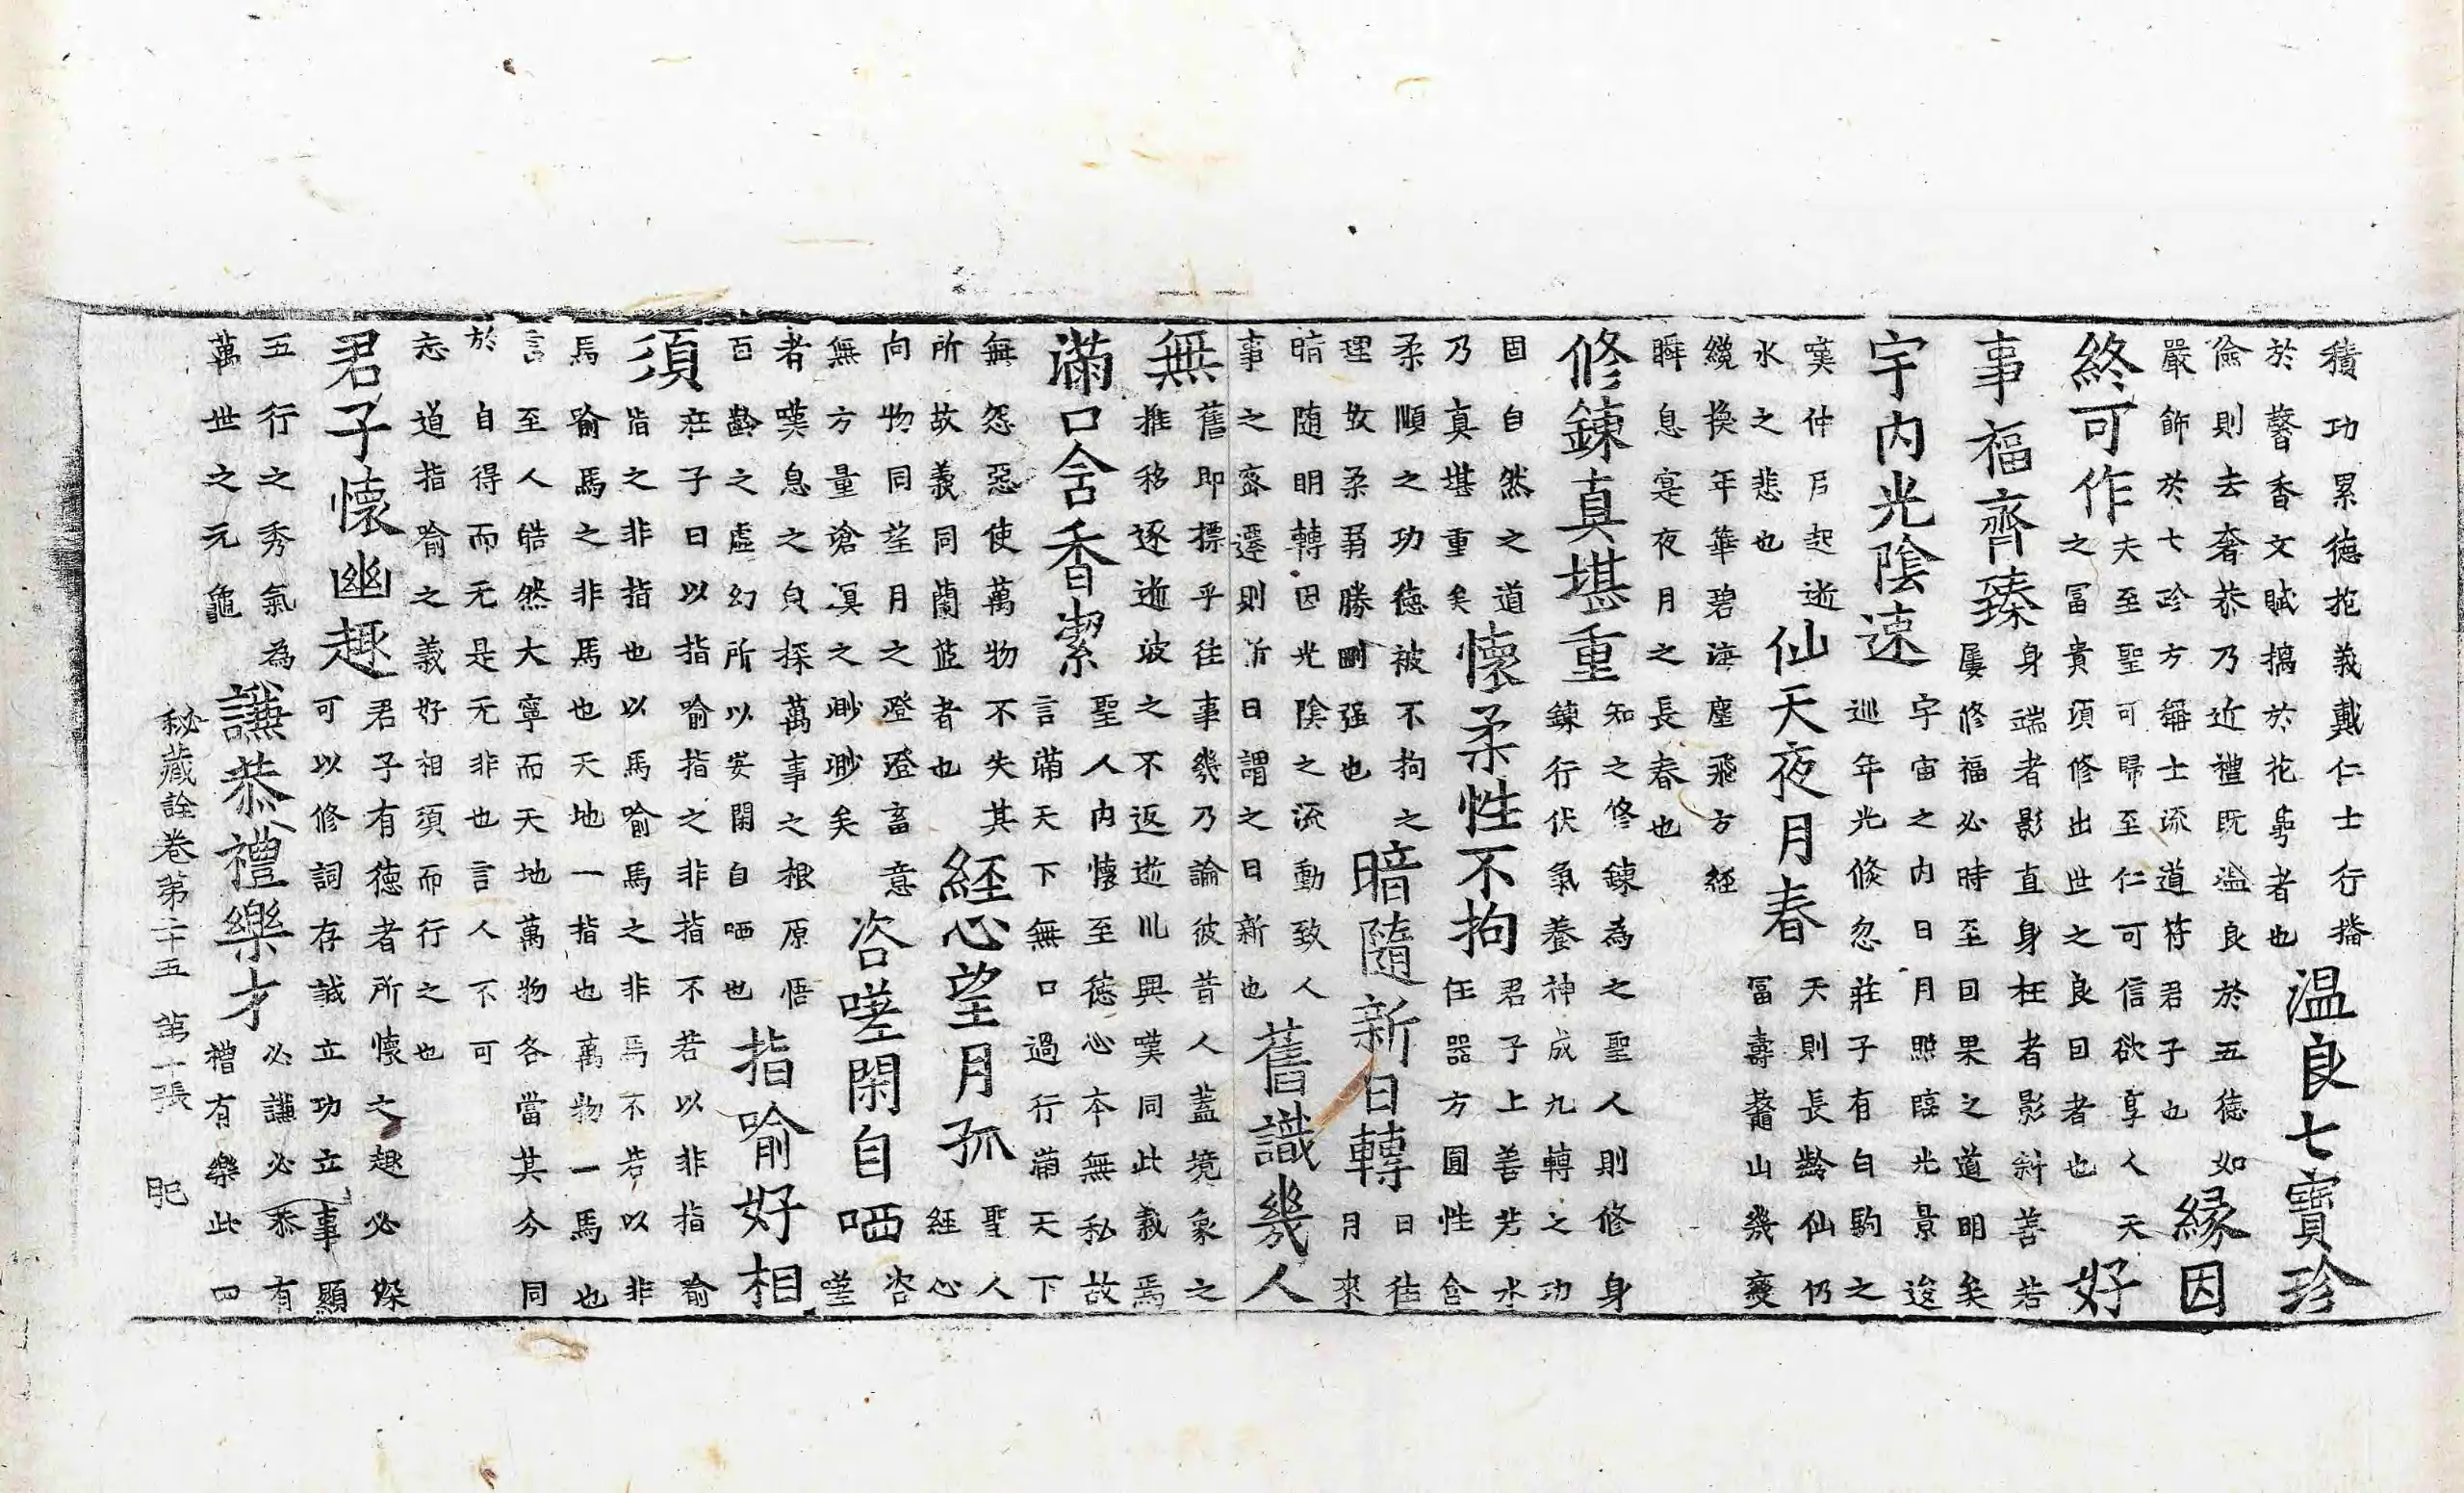 積功累德抱義戴仁士行播
於馨香文賦摛於花萼者也
溫良七寶珍
儉則去奢恭乃近禮既溫良於五德如
嚴飾於七珍方稱士流道符君子也
緣因
終可作
夫至聖可歸至仁可信欲享人天
之冨貴須修出世之良因者也
好
事福齊臻
身端者影直身枉者影斜善若
屢修福必時至因果之道明矣
宇內光陰速
宇宙之內日月照臨光景逡
巡年光倏忽莊子有白駒之
奚仲尼起逝
水之悲也
仙天夜月春
天則長齡仙仍
冨壽鼇山幾變
纔換年華碧海塵飛方經
瞬息寔夜月之長春也
修鍊真堪重
知之修鍊為之聖人則修身
鍊行伏氣養神成九轉之功
固自然之道
乃真堪重矣
懷柔性不拘
君子上善若水
任器方圓性含
柔順之功德被不拘之
理故柔弱勝剛强也
暗隨新日轉
日往
月來
暗随明轉因光陰之流動致人
事之齋遷則前日謂之日新也
舊識幾人
無
舊即標乎往事幾乃論彼昔人蓋境象之
推移逐逝波之不返逝川興嘆同此義焉
滿口含香潔
聖人內懷至德心本無私故
言滿天下無口過行滿天下
無怨惡使萬物不失其
所故義同蘭茝者也
經心望月孤
聖人
經心
向物同望月之澄澄畜意
無方量滄溟之渺渺矣
咨嗟閑自哂
咨
嗟
者嘆息之皃探萬事之根原悟
百齡之虛幻所以安閑自哂也
指喻好相
須
莊子曰以指喻指之非指不若以非指喻
指之非指也以馬喻馬之非馬不若以非
馬喻馬之非馬也天地一指也萬物一馬也
言至人皓然大寧而天地萬物各當其分同
於自得而无是无非也言人不可
忘道指喻之義好相須而行之也
君子懷幽趣
君子有德者所懷之趣必深
可以修詞存誠立功立事顯
五行之秀氣為
萬世之元龜
謙恭禮樂才
必謙必恭有
禮有樂此四
秘藏詮卷第二十五 第十張 肥